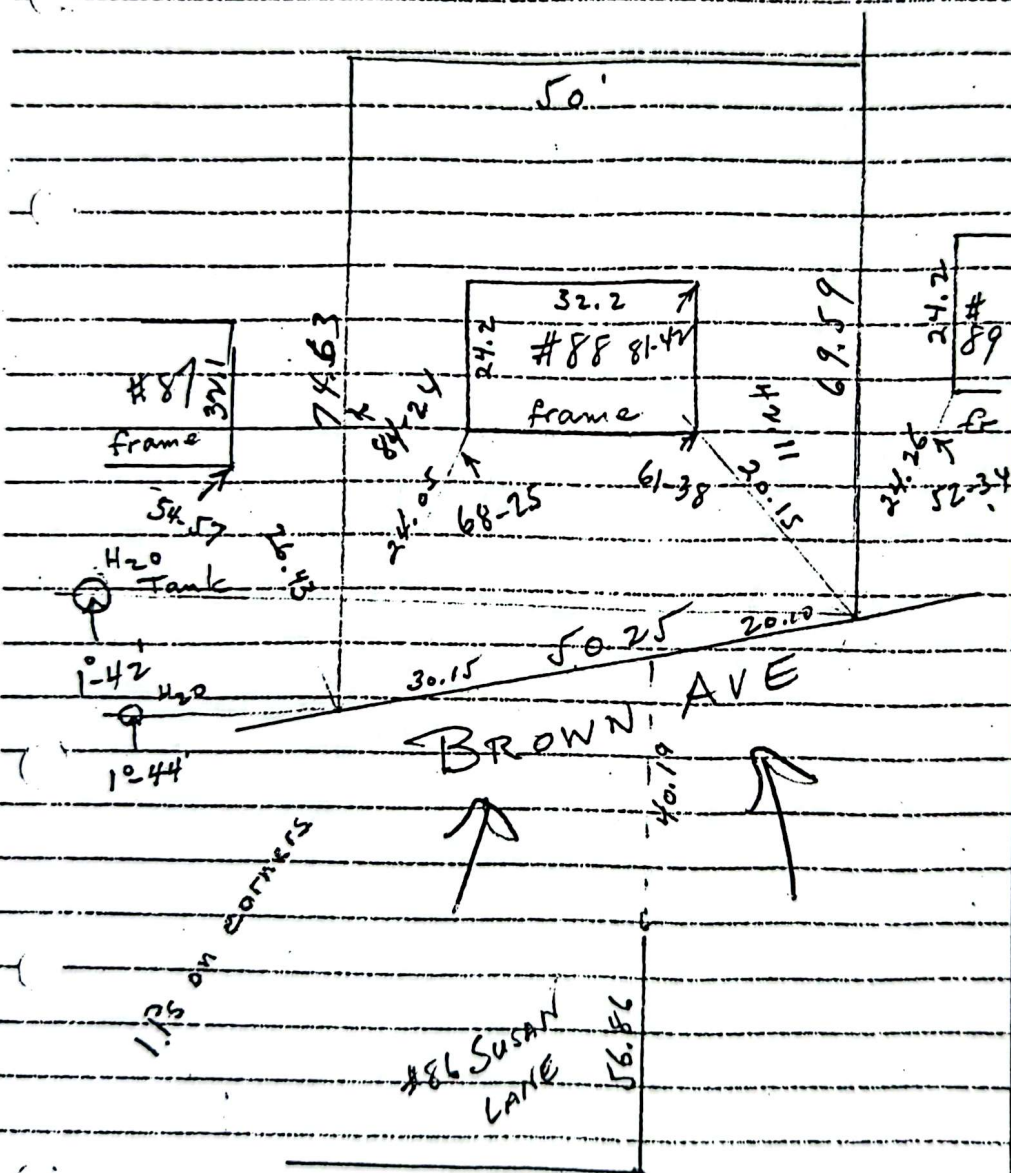 50'
32.2
24.2
#88
81-42
frame
#87
32.1
frame
74.63
84-24
69.59
24.2
#
89
fr
54-57
26.43
24.05
68-25
61-38
20.15
24.26
52-34
H2O
Tank
1°-42'
H2O
1°-44'
30.15
50.25
20.10
BROWN AVE
40.19
I.P.s on corners
#86 SUSAN
LANE
56.86